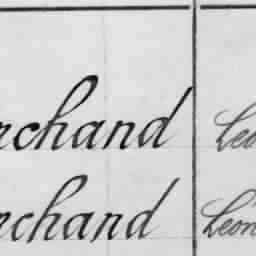 rchand Leo
rchand Leon